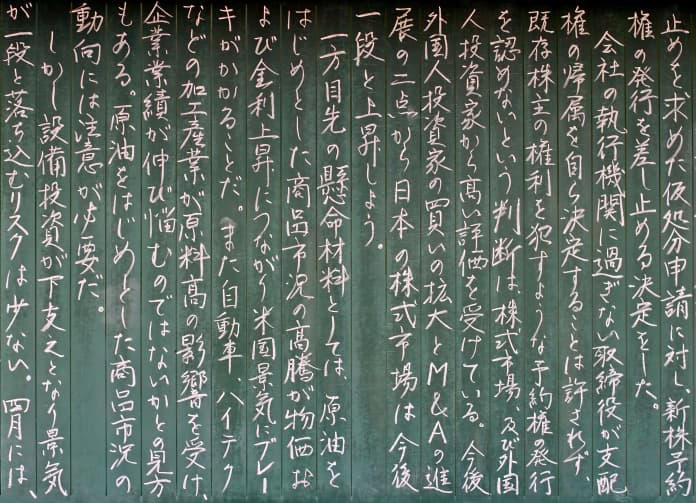 止めを求めた仮処分申請に対し新株予約
権の発行を差し止める決定をした。
会社の執行機関に過ぎない取締役が支配
権の帰属を自ら決定することは許されず、
既存株主の権利を犯すような予約権の発行
を認めないという判断は、株式市場、及び外国
人投資家から高い評価を受けている。今後
外国人投資家の買いの拡大とM&Aの進
展の二点から日本の株式市場は今後
一段と上昇しよう。
一方目先の懸命材料としては、原油を
はじめとした商品市況の高騰が物価お
よび金利上昇につながり米国景気にブレー
キがかかることだ。また自動車 ハイテク
などの加工産業が原料高の影響を受け、
企業業績が伸び悩むのではないかとの見方
もある。原油をはじめとした商品市況の
動向には注意が必要だ。
しかし設備投資が下支えとなり景気
が一段と落ち込むリスクは少ない。四月には、